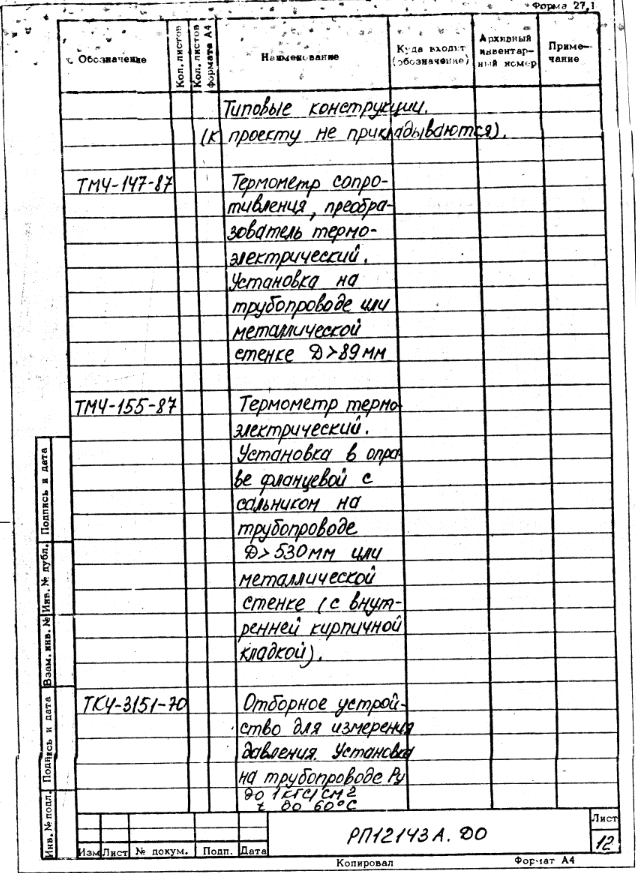 Форма 27,1
Обозначение
Кол. листов
Кол. листов формата А4
Наименование
Куда входит (обозначение)
Архивный инвентар-ный номер
Приме-чание
Типовые конструкции.
(к проекту не прикладываются).
ТМЧ-147-87
Термометр сопро-
тивления, преобра-
зователь термо-
электрический.
Установка на
трубопроводе или
металлической
стенке D>89 мм
ТМЧ-155-87
Термометр термо
электрический.
Установка в опра
ве фланцевой с
сальником на
трубопроводе
D>530мм или
металлической
стенке (с внут-
ренней кирпичной
кладкой).
ТКЧ-3151-70
Отборное устрой-
ство для измерения
давления. Установка
на трубопроводе Ру
до 1 кгс/см2
t до 60°С
Инв. № подл.
Подпись и дата
Взам. инв. №
Инв. № дубл.
Подпись и дата
Изм
Лист
№ докум.
Подп.
Дата
РП12143А. ДО
Лист
12
Копировал
Формат А4